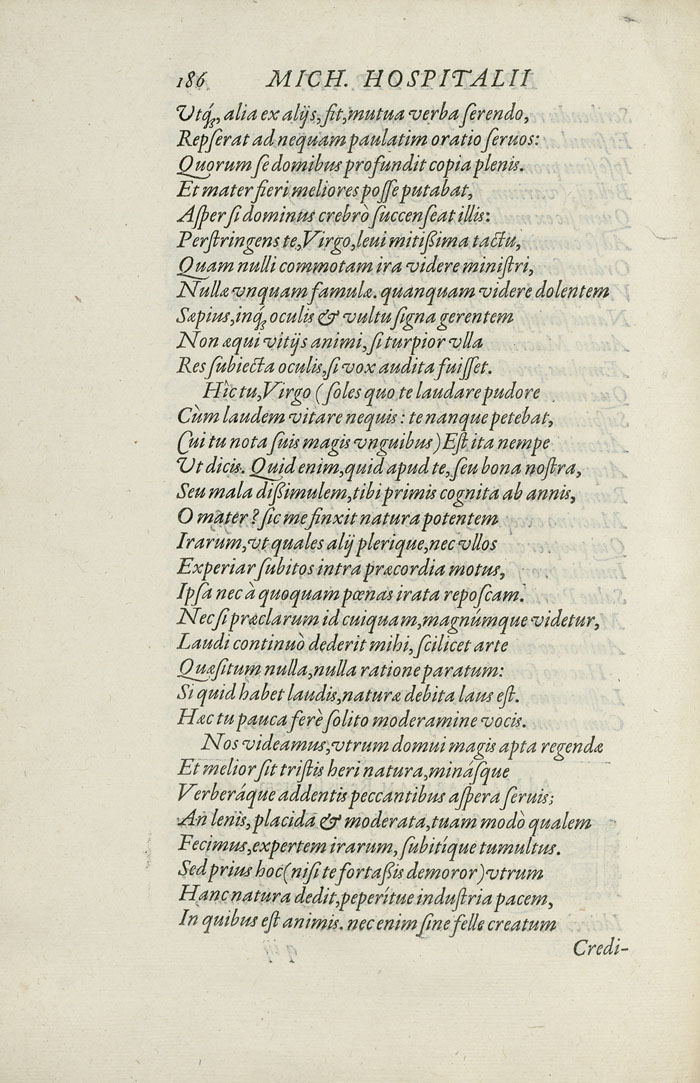 186 MICH. HOSPITALII
Vtq́;, alia ex alijs, fit, mutua verba ſerendo,
Repſerat ad nequam paulatim oratio ſeruos:
Quorum ſe domibus profundit copia plenis.
Et mater fieri meliores poſſe putabat,
Aſper ſi dominus crebrò ſuccenſeat illis:
Perſtringens te, Virgo, leui mitißima tactu,
Quam nulli commotam ira videre miniſtri,
Nullæ vnquam famulæ. quanquam videre dolentem
Sæpius, inq́; oculis & vultu ſigna gerentem
Non æqui vitijs animi, ſi turpior vlla
Res ſubiecta oculis, ſi vox audita fuiſſet.
Hîc tu, Virgo (ſoles quo te laudare pudore
Cùm laudem vitare nequis: te nanque petebat,
Cui tu nota ſuis magis vnguibus) Eſt ita nempe
Vt dicis. Quid enim, quid apud te, ſeu bona noſtra,
Seu mala dißimulem, tibi primis cognita ab annis,
O mater? ſic me finxit natura potentem
Irarum, vt quales alij plerique, nec vllos
Experiar ſubitos intra præcordia motus,
Ipſa nec à quoquam pœnas irata repoſcam.
Nec ſi præclarum id cuiquam, magnúmque videtur,
Laudi continuò dederit mihi, ſcilicet arte
Quæſitum nulla, nulla ratione paratum:
Si quid habet laudis, naturæ debita laus eſt.
Hæc tu pauca ferè ſolito moderamine vocis.
Nos videamus, vtrum domui magis apta regendæ
Et melior ſit triſtis heri natura, minásque
Verberáque addentis peccantibus aſpera ſeruis;
An lenis, placida & moderata, tuam modò qualem
Fecimus, expertem irarum, ſubitíque tumultus.
Sed prius hoc (niſi te fortaßis demoror) vtrum
Hanc natura dedit, peperítue induſtria pacem,
In quibus eſt animis. nec enim ſine felle creatum
Credi-